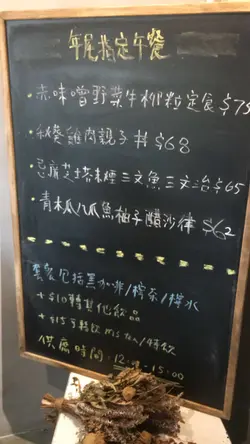 年尾指定午餐
· 赤味噌野菜牛柳粒定食 $75
· 秋葵雞肉親子丼 $68
· 芝士煙三文魚三文治 $65
· 青木瓜八爪魚柚子醋沙律 $62
套餐包括黑咖啡/檸茶/檸水
+ $10轉其他飲品
+ $15
供應時間:12:00-15:00